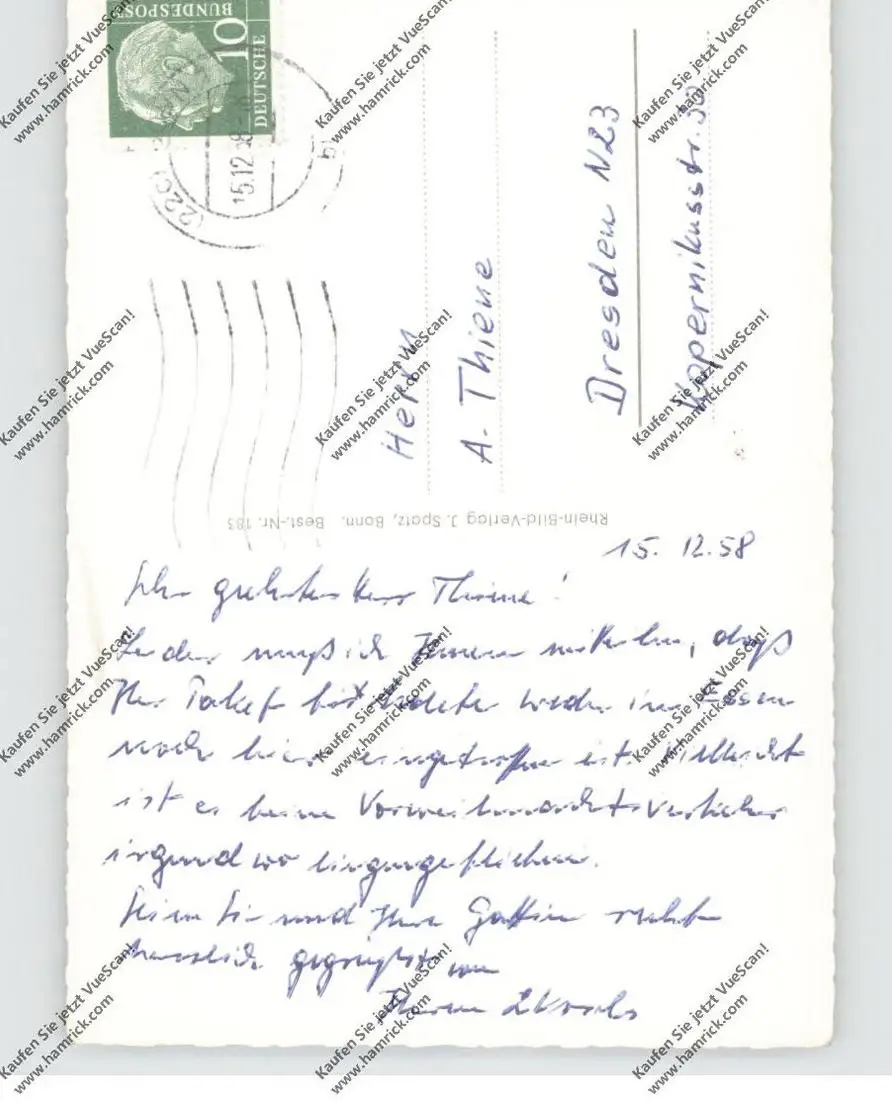 DEUTSCHE
BUNDESPOST
10
(22c)
15.12.58
Herrn
A. Thiene
Dresden N23
Kopernikusstr. 30
Rhein-Bild-Verlag J. Spatz, Bonn. Best.-Nr. 183
15. 12. 58
Sehr geehrter Herr Thieme!
Leider muß ich Ihnen mitteilen, daß
Ihr Paket bis heute weder in Essen
noch hier eingetroffen ist. Vielleicht
ist es beim Vorweihnachtsverkehr
irgendwo liegengeblieben.
Seien Sie und Ihre Gattin recht
herzlich gegrüßt von
Kaufen Sie jetzt VueScan!
www.hamrick.com